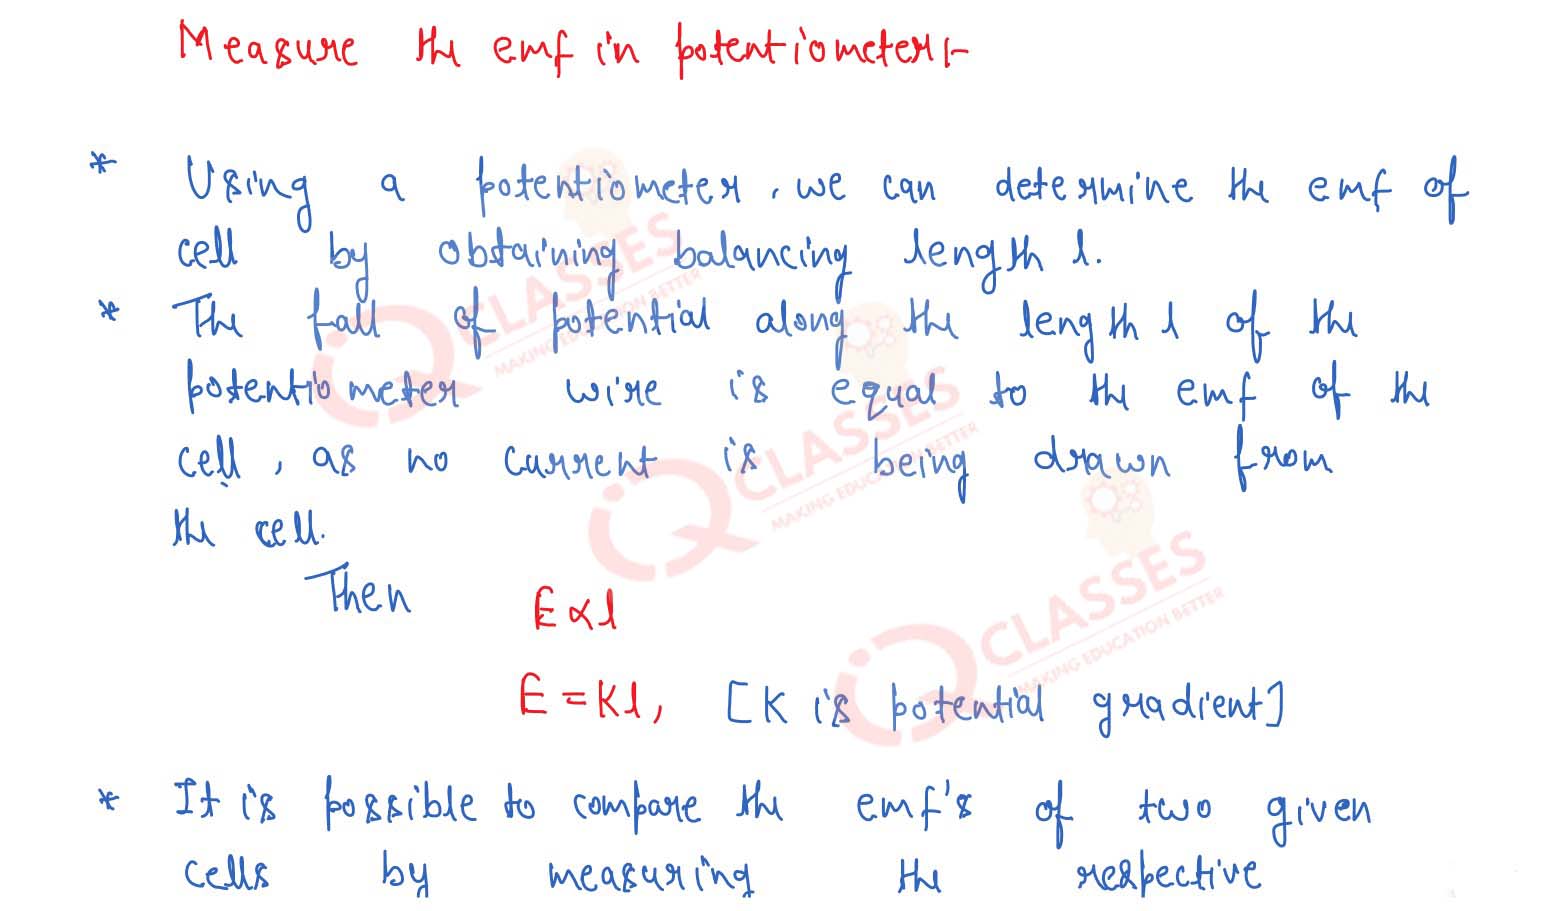 Measure the emf in potentiometer :-
* Using a potentiometer, we can determine the emf of
cell by obtaining balancing length l.
* The fall of potential along the length l of the
potentiometer wire is equal to the emf of the
cell, as no current is being drawn from
the cell.
Then
E ∝ l
E = Kl, [K is potential gradient]
* It is possible to compare the emf's of two given
cells by measuring the respective
IQ CLASSES
MAKING EDUCATION BETTER
IQ CLASSES
MAKING EDUCATION BETTER
IQ CLASSES
MAKING EDUCATION BETTER